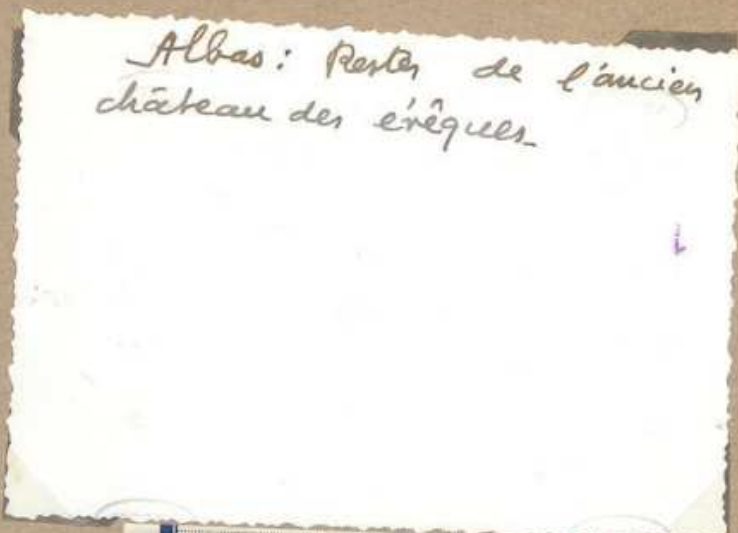 Albas: Restes de l'ancien
château des évêques_